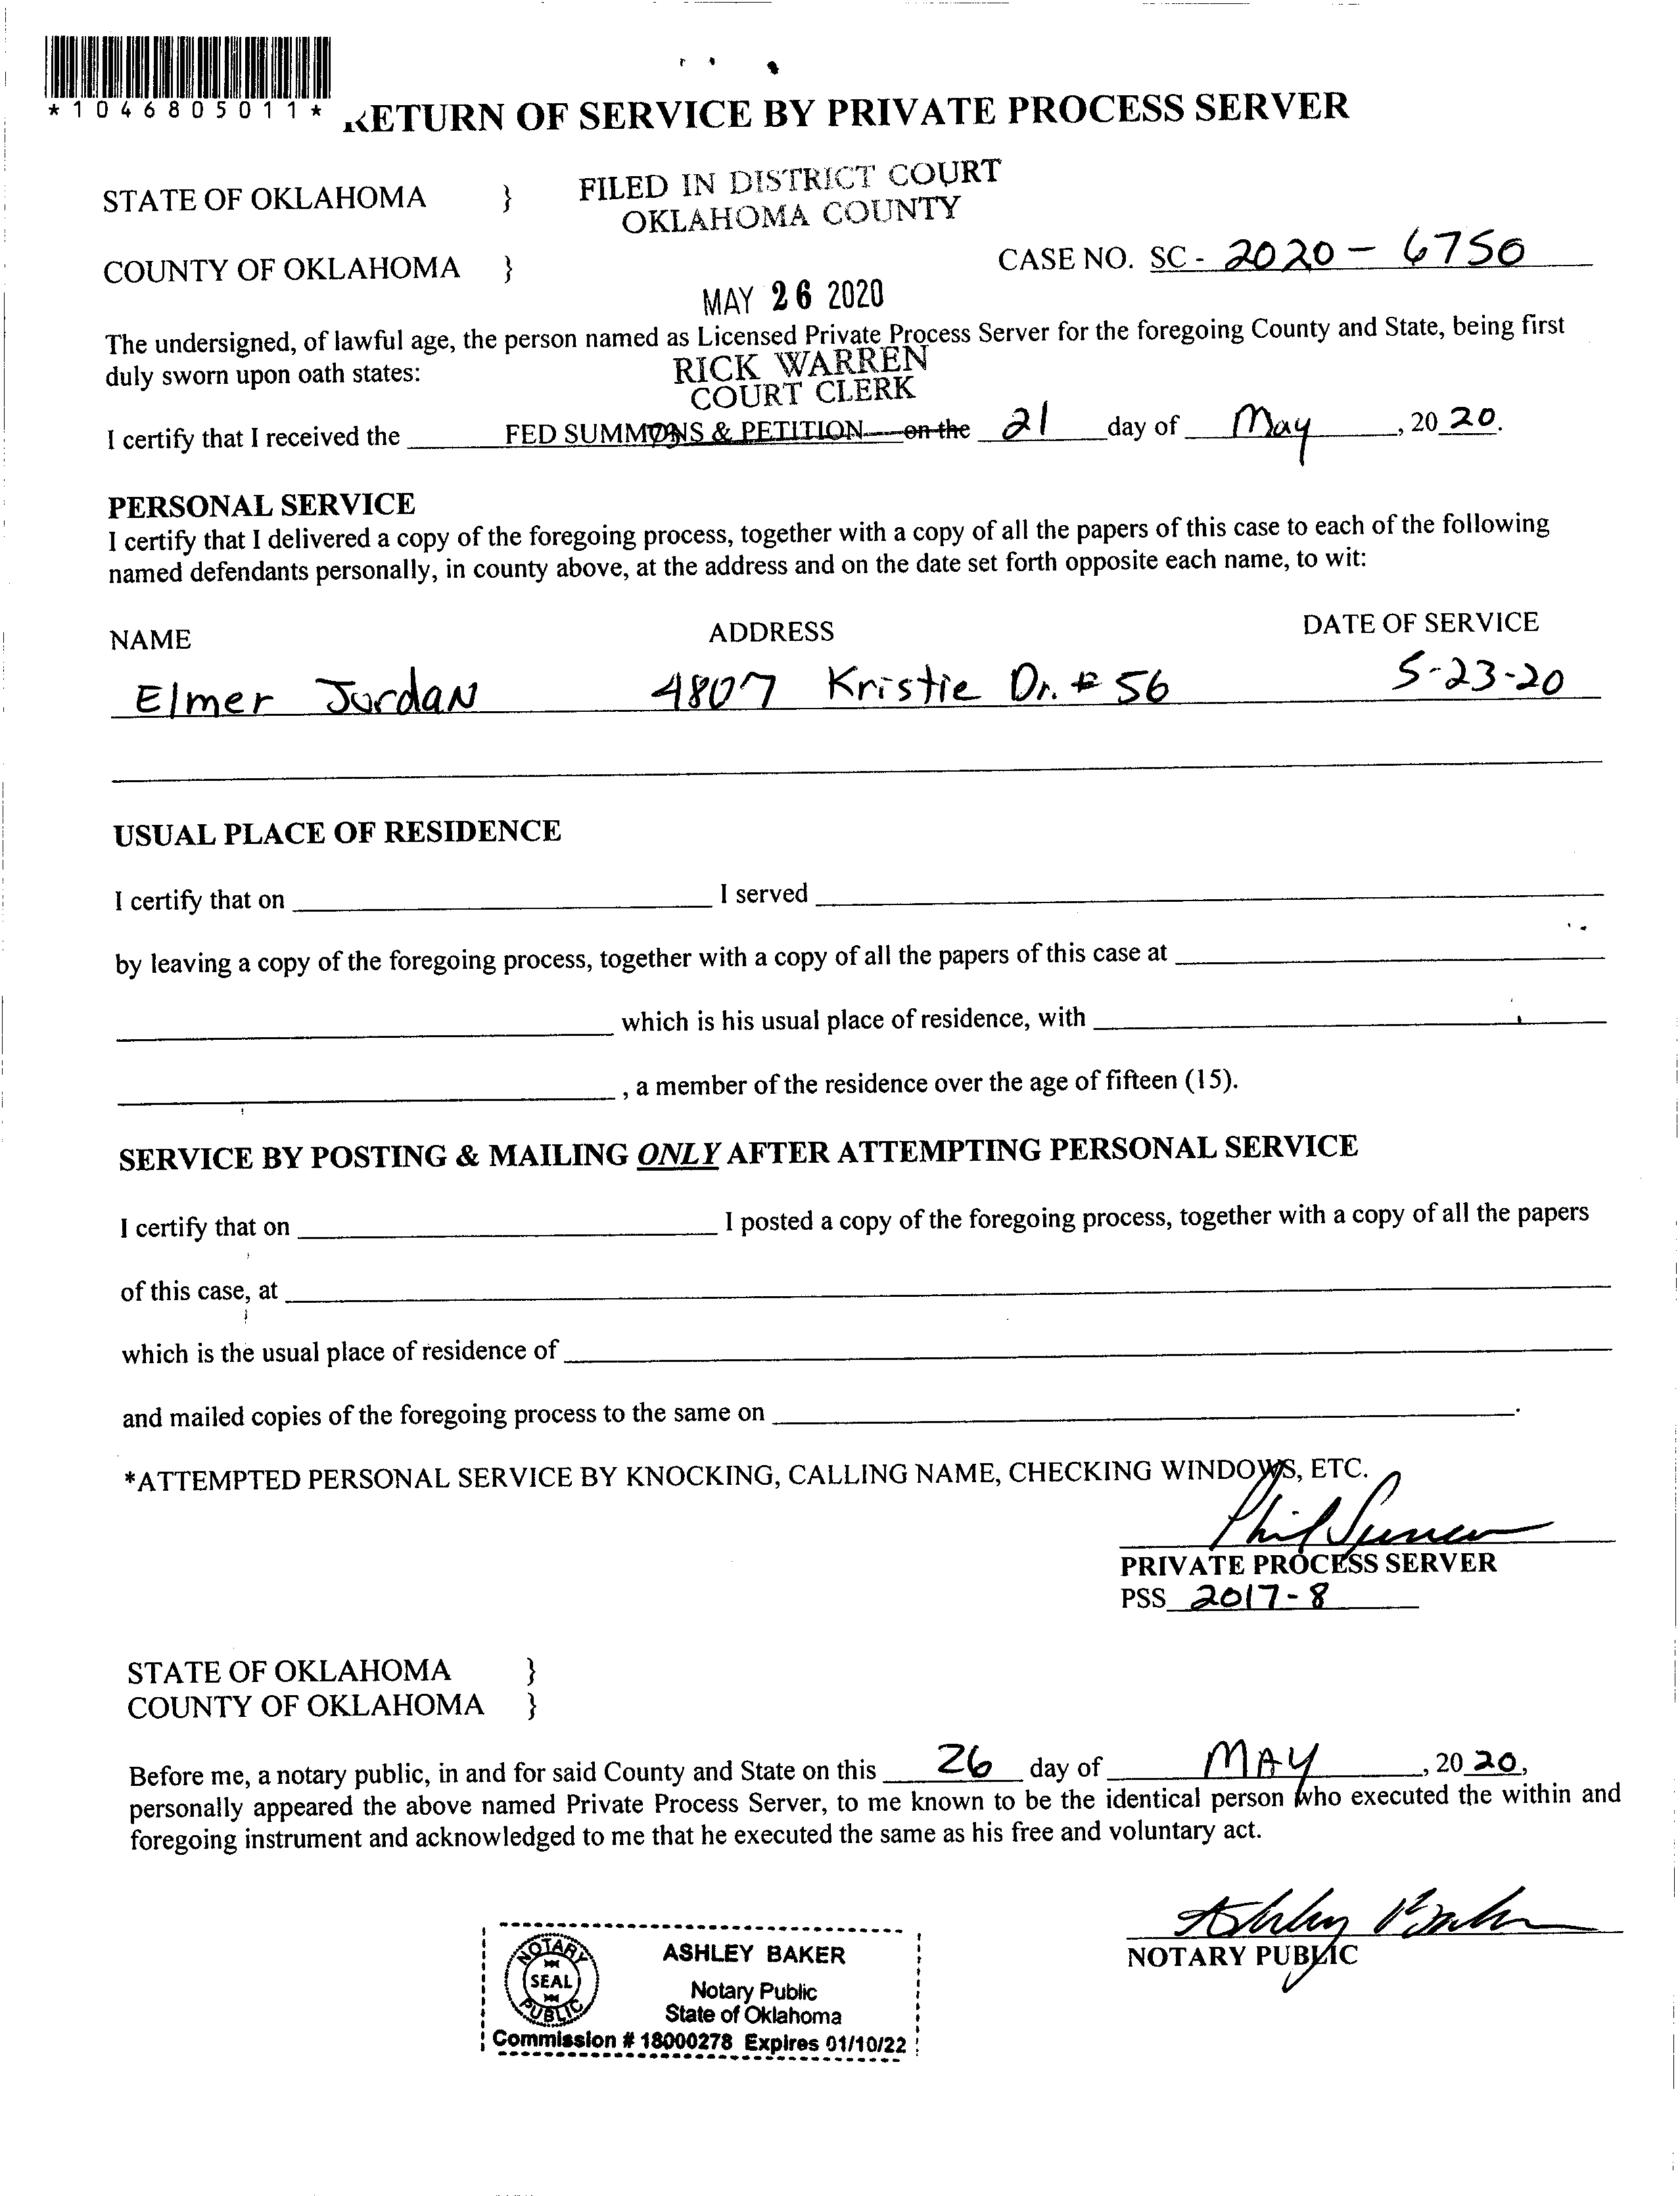 *1046805011*
RETURN OF SERVICE BY PRIVATE PROCESS SERVER
STATE OF OKLAHOMA }
FILED IN DISTRICT COURT
OKLAHOMA COUNTY
COUNTY OF OKLAHOMA }
CASE NO. SC - 2020 - 6750
MAY 26 2020
The undersigned, of lawful age, the person named as Licensed Private Process Server for the foregoing County and State, being first
duly sworn upon oath states:
RICK WARREN
COURT CLERK
I certify that I received the FED SUMMONS & PETITION on the 21 day of May, 2020.
PERSONAL SERVICE
I certify that I delivered a copy of the foregoing process, together with a copy of all the papers of this case to each of the following
named defendants personally, in county above, at the address and on the date set forth opposite each name, to wit:
NAME ADDRESS DATE OF SERVICE
Elmer Jordan 4807 Kristie Dr. # 56 5-23-20
USUAL PLACE OF RESIDENCE
I certify that on I served
by leaving a copy of the foregoing process, together with a copy of all the papers of this case at
which is his usual place of residence, with
, a member of the residence over the age of fifteen (15).
SERVICE BY POSTING & MAILING ONLY AFTER ATTEMPTING PERSONAL SERVICE
I certify that on I posted a copy of the foregoing process, together with a copy of all the papers
of this case, at
which is the usual place of residence of
and mailed copies of the foregoing process to the same on .
*ATTEMPTED PERSONAL SERVICE BY KNOCKING, CALLING NAME, CHECKING WINDOWS, ETC.
Phil
PRIVATE PROCESS SERVER
PSS 2017-8
STATE OF OKLAHOMA }
COUNTY OF OKLAHOMA }
Before me, a notary public, in and for said County and State on this 26 day of MAY, 2020,
personally appeared the above named Private Process Server, to me known to be the identical person who executed the within and
foregoing instrument and acknowledged to me that he executed the same as his free and voluntary act.
Ashley Baker
NOTARY PUBLIC
NOTARY
SEAL
PUBLIC
ASHLEY BAKER
Notary Public
State of Oklahoma
Commission # 18000278 Expires 01/10/22